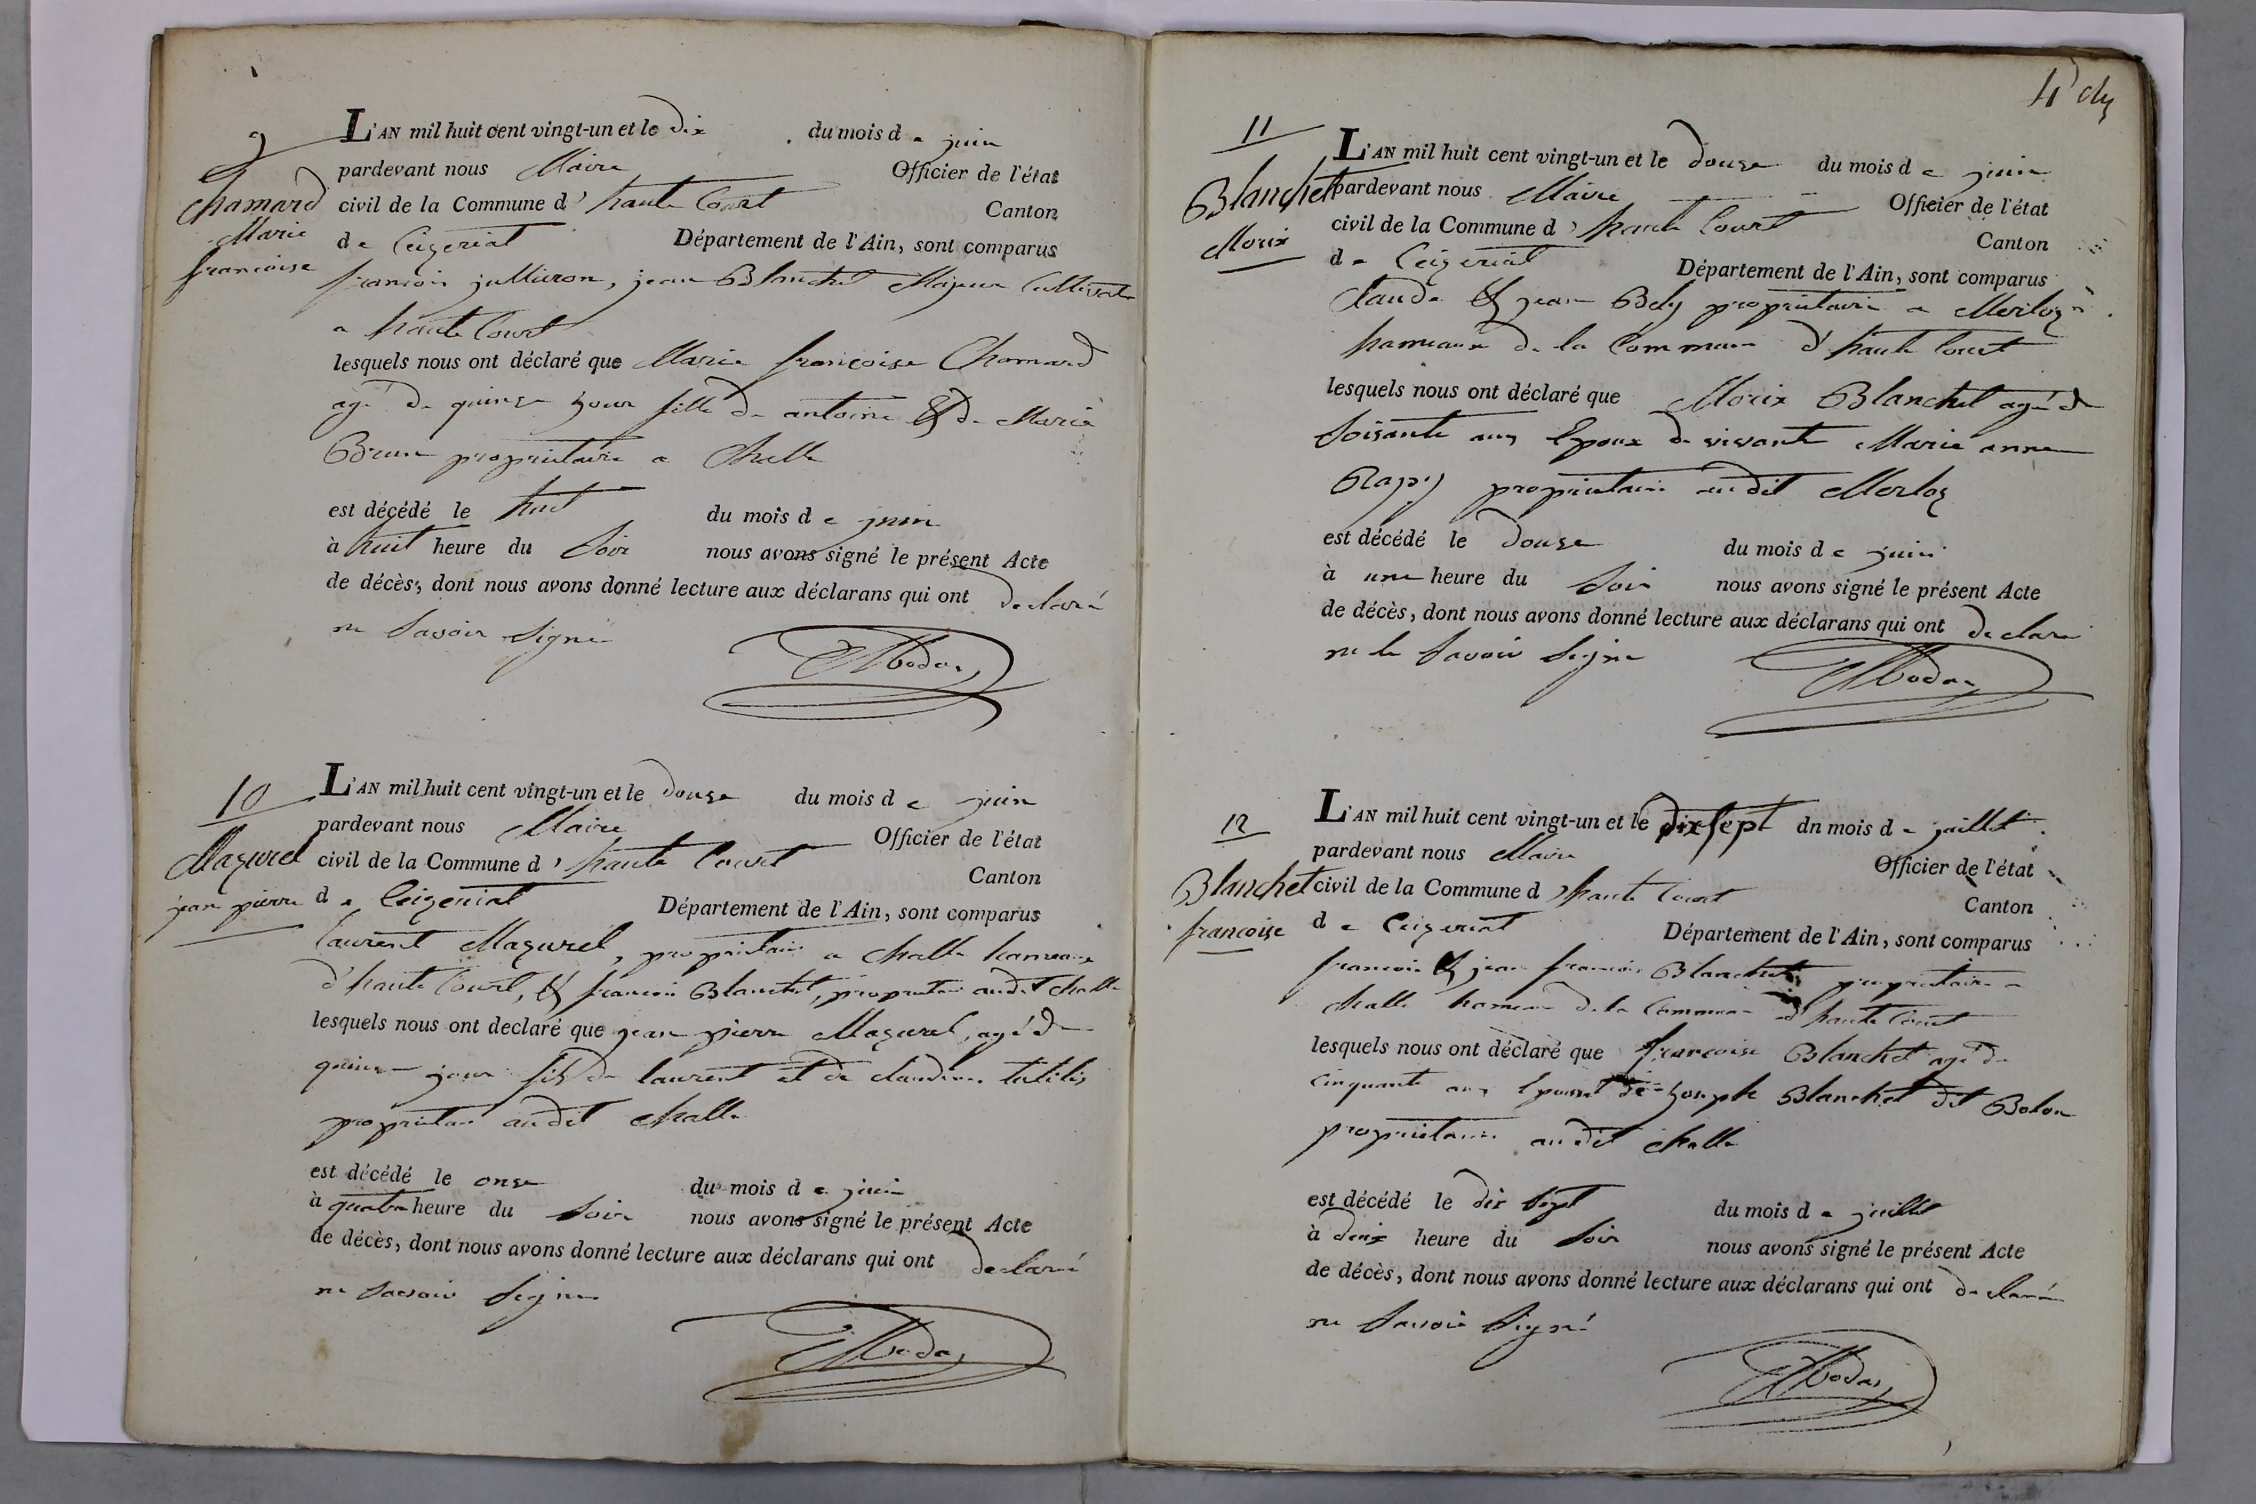 9
Chamard
Marie
francoise
L'AN mil huit cent vingt-un et le dix du mois de juin
pardevant nous Maire Officier de l'état
civil de la Commune d'haute Court Canton
de Ceizeriat Département de l'Ain, sont comparus
francois jullieron, jean Blanchet Majeur Cultivateur
a haute Court
lesquels nous ont déclaré que Marie françoise Chamard
agé de quinze jour fille de antoine & de Marie
Brun propriétaire a Challe
est décédé le huit du mois de juin
à huit heure du Soir nous avons signé le présent Acte
de décès, dont nous avons donné lecture aux déclarans qui ont declaré
ne Savoir Signé
10
Mazurel
jean pierre
L'AN mil huit cent vingt-un et le douse du mois de juin
pardevant nous Maire Officier de l'état
civil de la Commune d'haute Court Canton
de Ceizeriat Département de l'Ain, sont comparus
laurent Mazurel, propriétaire a challe hameaux
d'haute Court, & francois Blanchet, proprietaire audit challe
lesquels nous ont declaré que jean pierre Mazurel, agé de
quinze jour fils de laurent et de claudine
propriétaire audit challe
est décédé le onse du mois de juin
à quatre heure du Soir nous avons signé le présent Acte
de décès, dont nous avons donné lecture aux déclarans qui ont declaré
ne Savoir Signer
11
Blanchet
Morix
L'AN mil huit cent vingt-un et le douse du mois de juin
pardevant nous Maire Officier de l'état
civil de la Commune d'haute Court Canton
de Ceizeriat Département de l'Ain, sont comparus
Claude & jean Bely propriétaire a Merloz
hameaux de la Commune d'haute Court
lesquels nous ont déclaré que Morix Blanchet agé de
Soisante ans Epoux de vivante Marie anne
propriétaire audit Merloz
est décédé le douse du mois de juin
à une heure du Soir nous avons signé le présent Acte
de décès, dont nous avons donné lecture aux déclarans qui ont declaré
ne le Savoir Signe
12
Blanchet
francoise
L'AN mil huit cent vingt-un et le dix sept dn mois de juillet
pardevant nous Maire Officier de l'état
civil de la Commune d'haute Court Canton
de Ceizeriat Département de l'Ain, sont comparus
francois & jean francois Blanchet propriétaire a
challe hameau de la Commune d'haute Court
lesquels nous ont déclaré que françoise Blanchet agé de
cinquante ans Epouse de joseph Blanchet dit Bolon
propriétaire audit challe
est décédé le dix sept du mois de juillet
à deix heure du Soir nous avons signé le présent Acte
de décès, dont nous avons donné lecture aux déclarans qui ont declaré
ne Savoir Signé